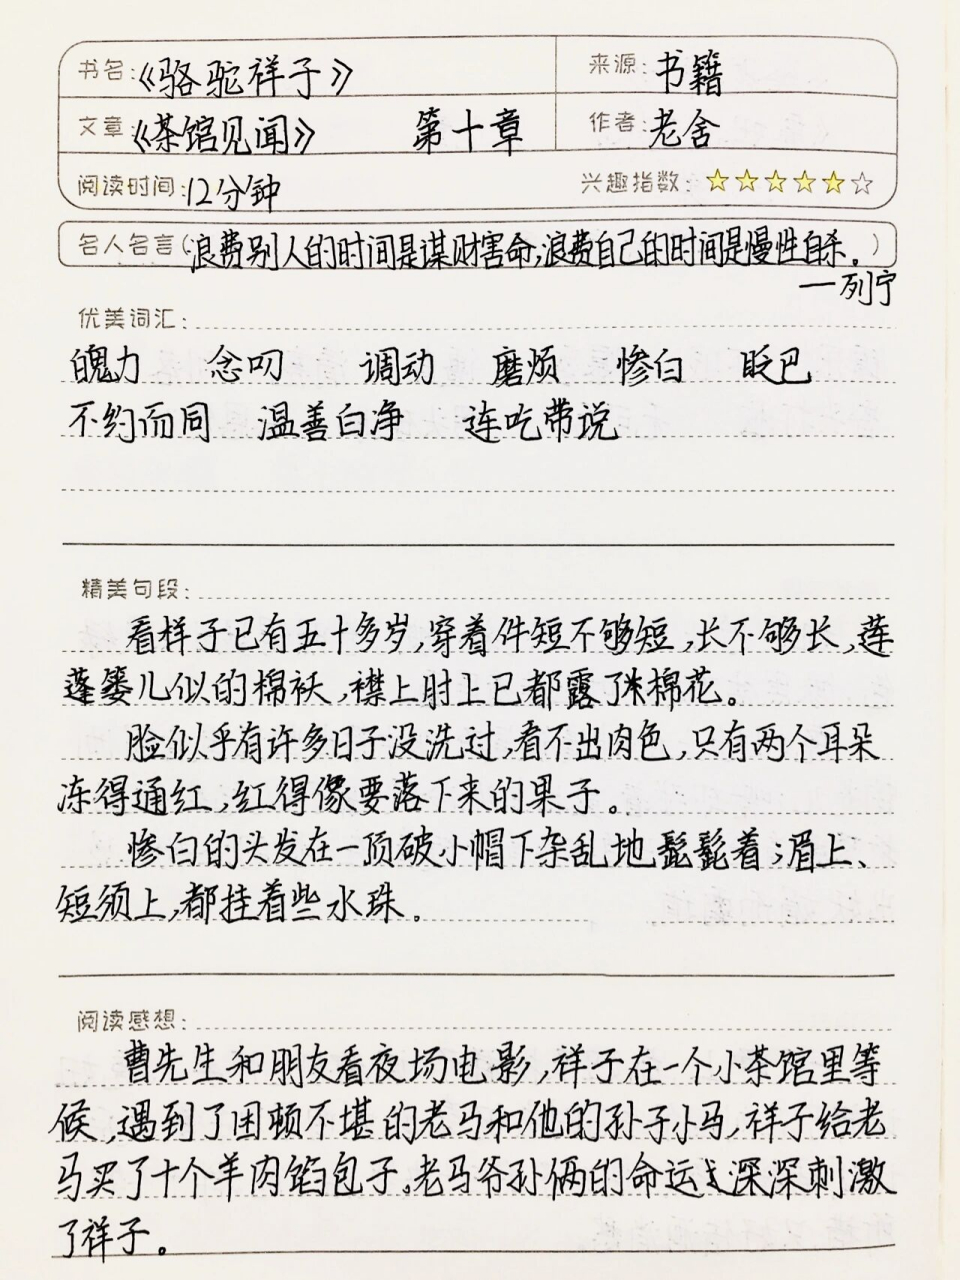 书名:《骆驼祥子》 来源:书籍
文章:《茶馆见闻》 第十章 作者:老舍
阅读时间:12分钟 兴趣指数:★★★★★☆
名人名言(浪费别人的时间是谋财害命;浪费自己的时间是慢性自杀。)
——列宁
优美词汇:
魄力 念叨 调动 磨烦 惨白 眨巴
不约而同 温善白净 连吃带说
精美句段:
看样子已有五十多岁,穿着件短不够短,长不够长,莲
蓬篓儿似的棉袄,襟上肘上已都露了棉花。
脸似乎有许多日子没洗过,看不出肉色,只有两个耳朵
冻得通红,红得像要落下来的果子。
惨白的头发在一顶破小帽下杂乱地髭髭着;眉上、
短须上,都挂着些水珠。
阅读感想:
曹先生和朋友看夜场电影,祥子在一个小茶馆里等
候,遇到了困顿不堪的老马和他的孙子小马,祥子给老
马买了十个羊肉馅包子。老马爷孙俩的命运深深刺激
了祥子。